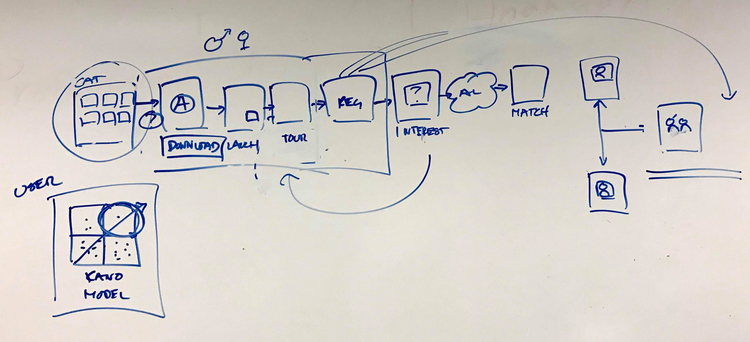 CAT
A
?
DOWNLOAD/LAUNCH
TOUR
REG
?
INTEREST
MATCH
USER
KANO
MODEL